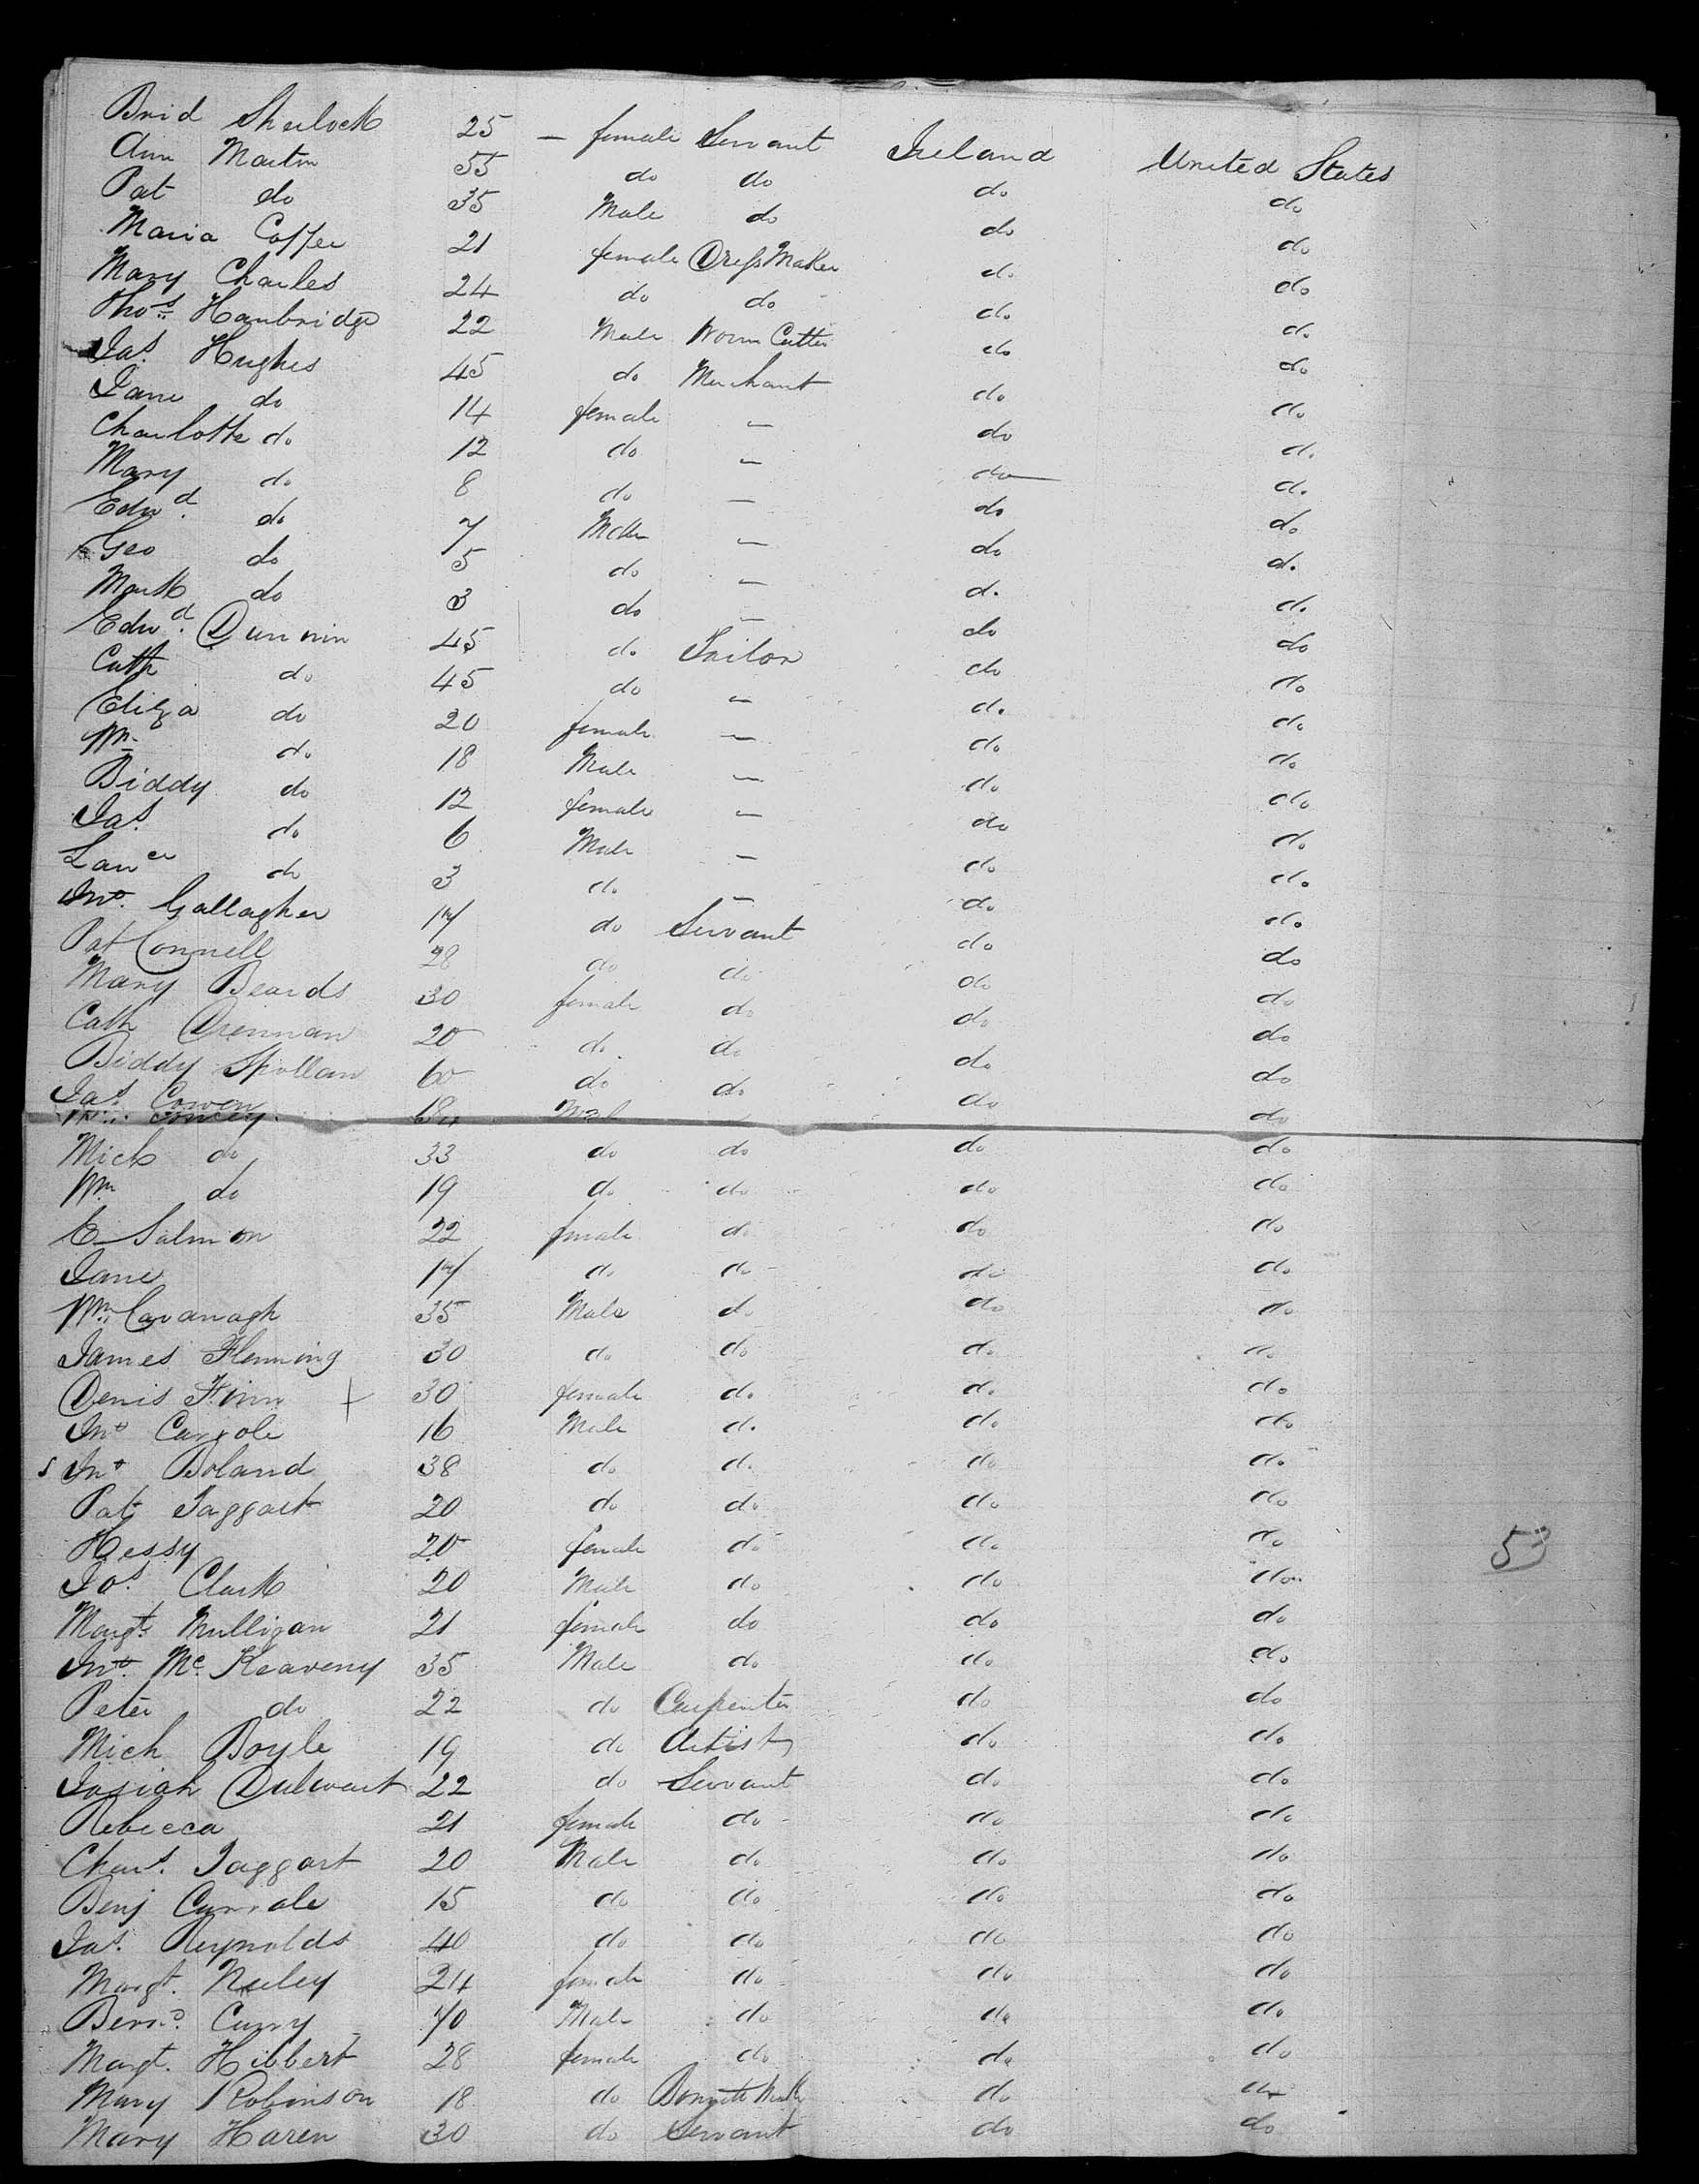 Brid Sherlock 25 — female Servant Ireland United States
Ann Martin 55 do do do do
Pat do 35 Male do do do
Maria Coffee 21 female Dress Maker do do
Mary Charles 24 do do do do
Thos. Hanbridge 22 Male Worm Cutter do do
Jas. Hughes 45 do Merchant do do
Jane do 14 female — do do
Charlotte do 12 do — do do
Mary do 8 do — do do
Edwd. do 7 Male — do do
Geo do 5 do — do do
Mark do 3 do — do do
Edwd. Dunnin 45 do Tailor do do
Cath do 45 do — do do
Eliza do 20 female — do do
Wm. do 18 Male — do do
Biddy do 12 female — do do
Jas. do 6 Male — do do
Lance do 3 do — do do
Jno. Gallagher 17 do Servant do do
Pat Connell 28 do do do do
Mary Beards 30 female do do do
Cath Drennan 20 do do do do
Biddy Spollan 60 do do do do
Jas. Cowen 18 Male do do
Mick do 33 do do do do
Wm do 19 do do do do
E Salmon 22 female do do do
Jane 17 do do do do
Wm. Cavanagh 35 Male do do do
James Flemming 30 do do do do
Denis Finn + 30 female do do do
Jno Carrole 16 Male do do do
Jno Boland 38 do do do do
Pat Taggart 20 do do do do
Hessy 20 female do do do
Jos. Clark 20 Male do do do
Margt. Mulligan 21 female do do do
Jno. Mc. Keaveny 35 Male do do do
Peter do 22 do Carpenter do do
Mich Boyle 19 do Artist do do
Josiah Dulwart 22 do Servant do do
Rebecca 21 female do do do
Chars. Taggart 20 Male do do do
Benj Carrole 15 do do do do
Jas. Reynolds 40 do do do do
Margt. Neeley 24 female do do do
Bernd. Curry 40 Male do do do
Margt. Hibbert 28 female do do do
Mary Robinson 18 do do do
Mary Haren 30 do Servant do do
53